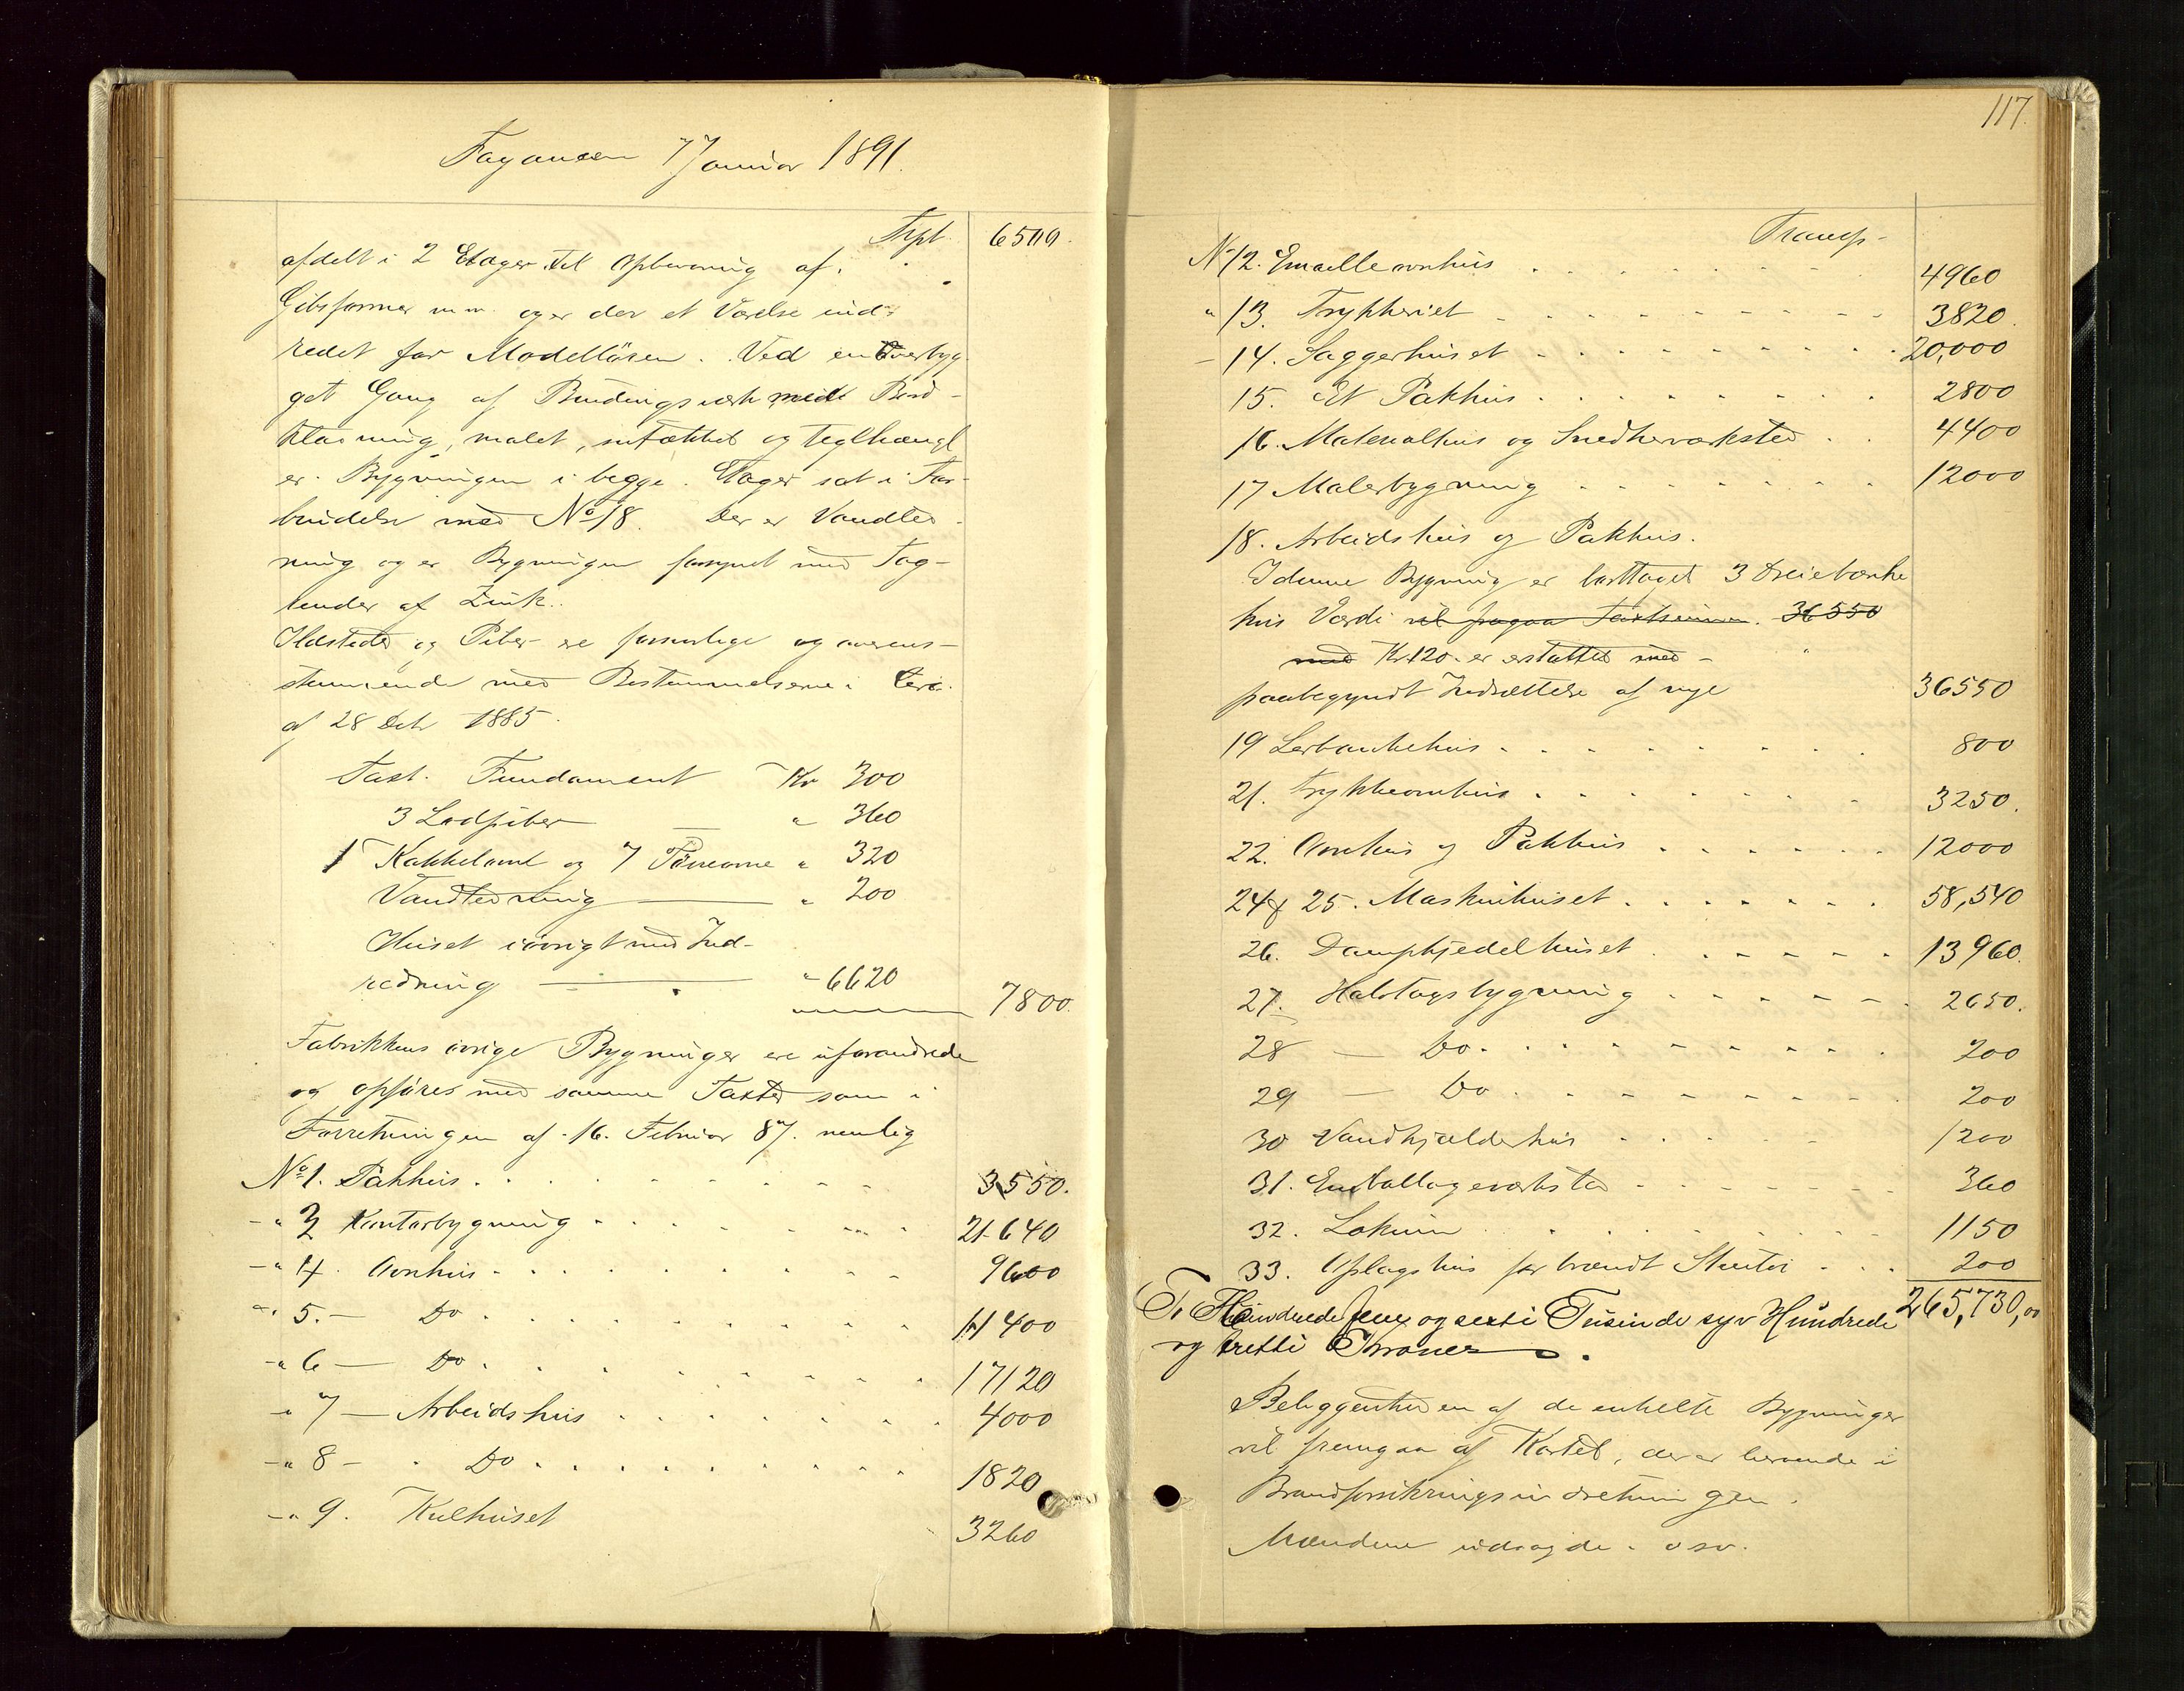 Fayancen 7 Januar 1891.
Trpt. 6500.
afdelt i 2 Etager til Opbevaring af
Gibsformer m.m. og er der et Værelse ind-
redet for Modelløren. Ved en overbyg
get Gang af Bindingsværk med Bord-
klædning, malet, og teglhængt
er Bygningen i begge Etager sat i For-
bindelse med No 18. Der er Vandled-
ning og er Bygningen forsynet med Tag-
render af Zink.
Ildsteder og Piber ere forsvarlige og overens-
stemmende med Bestemmelserne i
af 28 Dcb 1885.
Taxt. Fundament Kr 300
3 Lodpiber " 360
1 Kakkelovn og 7 Tørreovne " 320
Vandledning " 200
Huset iøvrigt med Ind-
redning " 6620
7800.
Fabrikkens øvrige Bygninger ere uforandrede
og opføres med samme Taxter som i
Forretningen af 16. Februar 87. nemlig
No 1. Pakhus 3550.
-" 3 Kontorbygning 21640
-" 4. Ovnhus 9600
-" 5. — Do 11400
-" 6 — Do 17120
-" 7 — Arbeidshus 4000
-" 8 — Do 1820
-" 9. Kulhuset 3260
117.
Transp.
No 12. Emailleovnhus 4960
" 13. Trykkeriet 3820.
— 14. Saggerhuset 20,000
15. Et Pakhus 2800
16. Materialhus og Snedkerværksted 4400
17 Malerbygning 12000
18. Arbeidshus og Pakhus.
I denne Bygning er borttaget 3 Dreiebænke
hvis Værdi vil fragaa Taxtsummen. 36550
med Kr 120. er erstattet med
paabegyndt Indsættelse af nye 36550
19 Lerbankehus 800
21. Trykkeovnhus 3250.
22. Ovnhus og Pakhus 12000
24 & 25. Maskinhuset 58,540
26. Dampkjedelhuset 13960.
27. Halvtagsbygning 2650.
28 — Do. 200
29 — Do 200
30 Vandkjælderhus 1200
31. Emballageværksted 360
32. Lokum 1150
33. Oplagshus for brændt Stentøi 200
265,730,00
To Hundrede fem og sexti Tusinde syv Hundrede
og tretti Kroner.
Beliggenheden af de enkelte Bygninger
vil fremgaa af Kartet, der er beroende i
Brandforsikringsindretningen.
Mændene udsagde. osv.